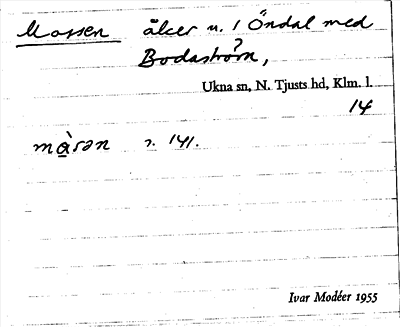 Mossen åker u. 1 Öndal med
Bodaström,
?
Ukna sn, N. Tjusts hd, Klm. l.
14
mɑ̀sən s. 141.
Ivar Modéer 1955